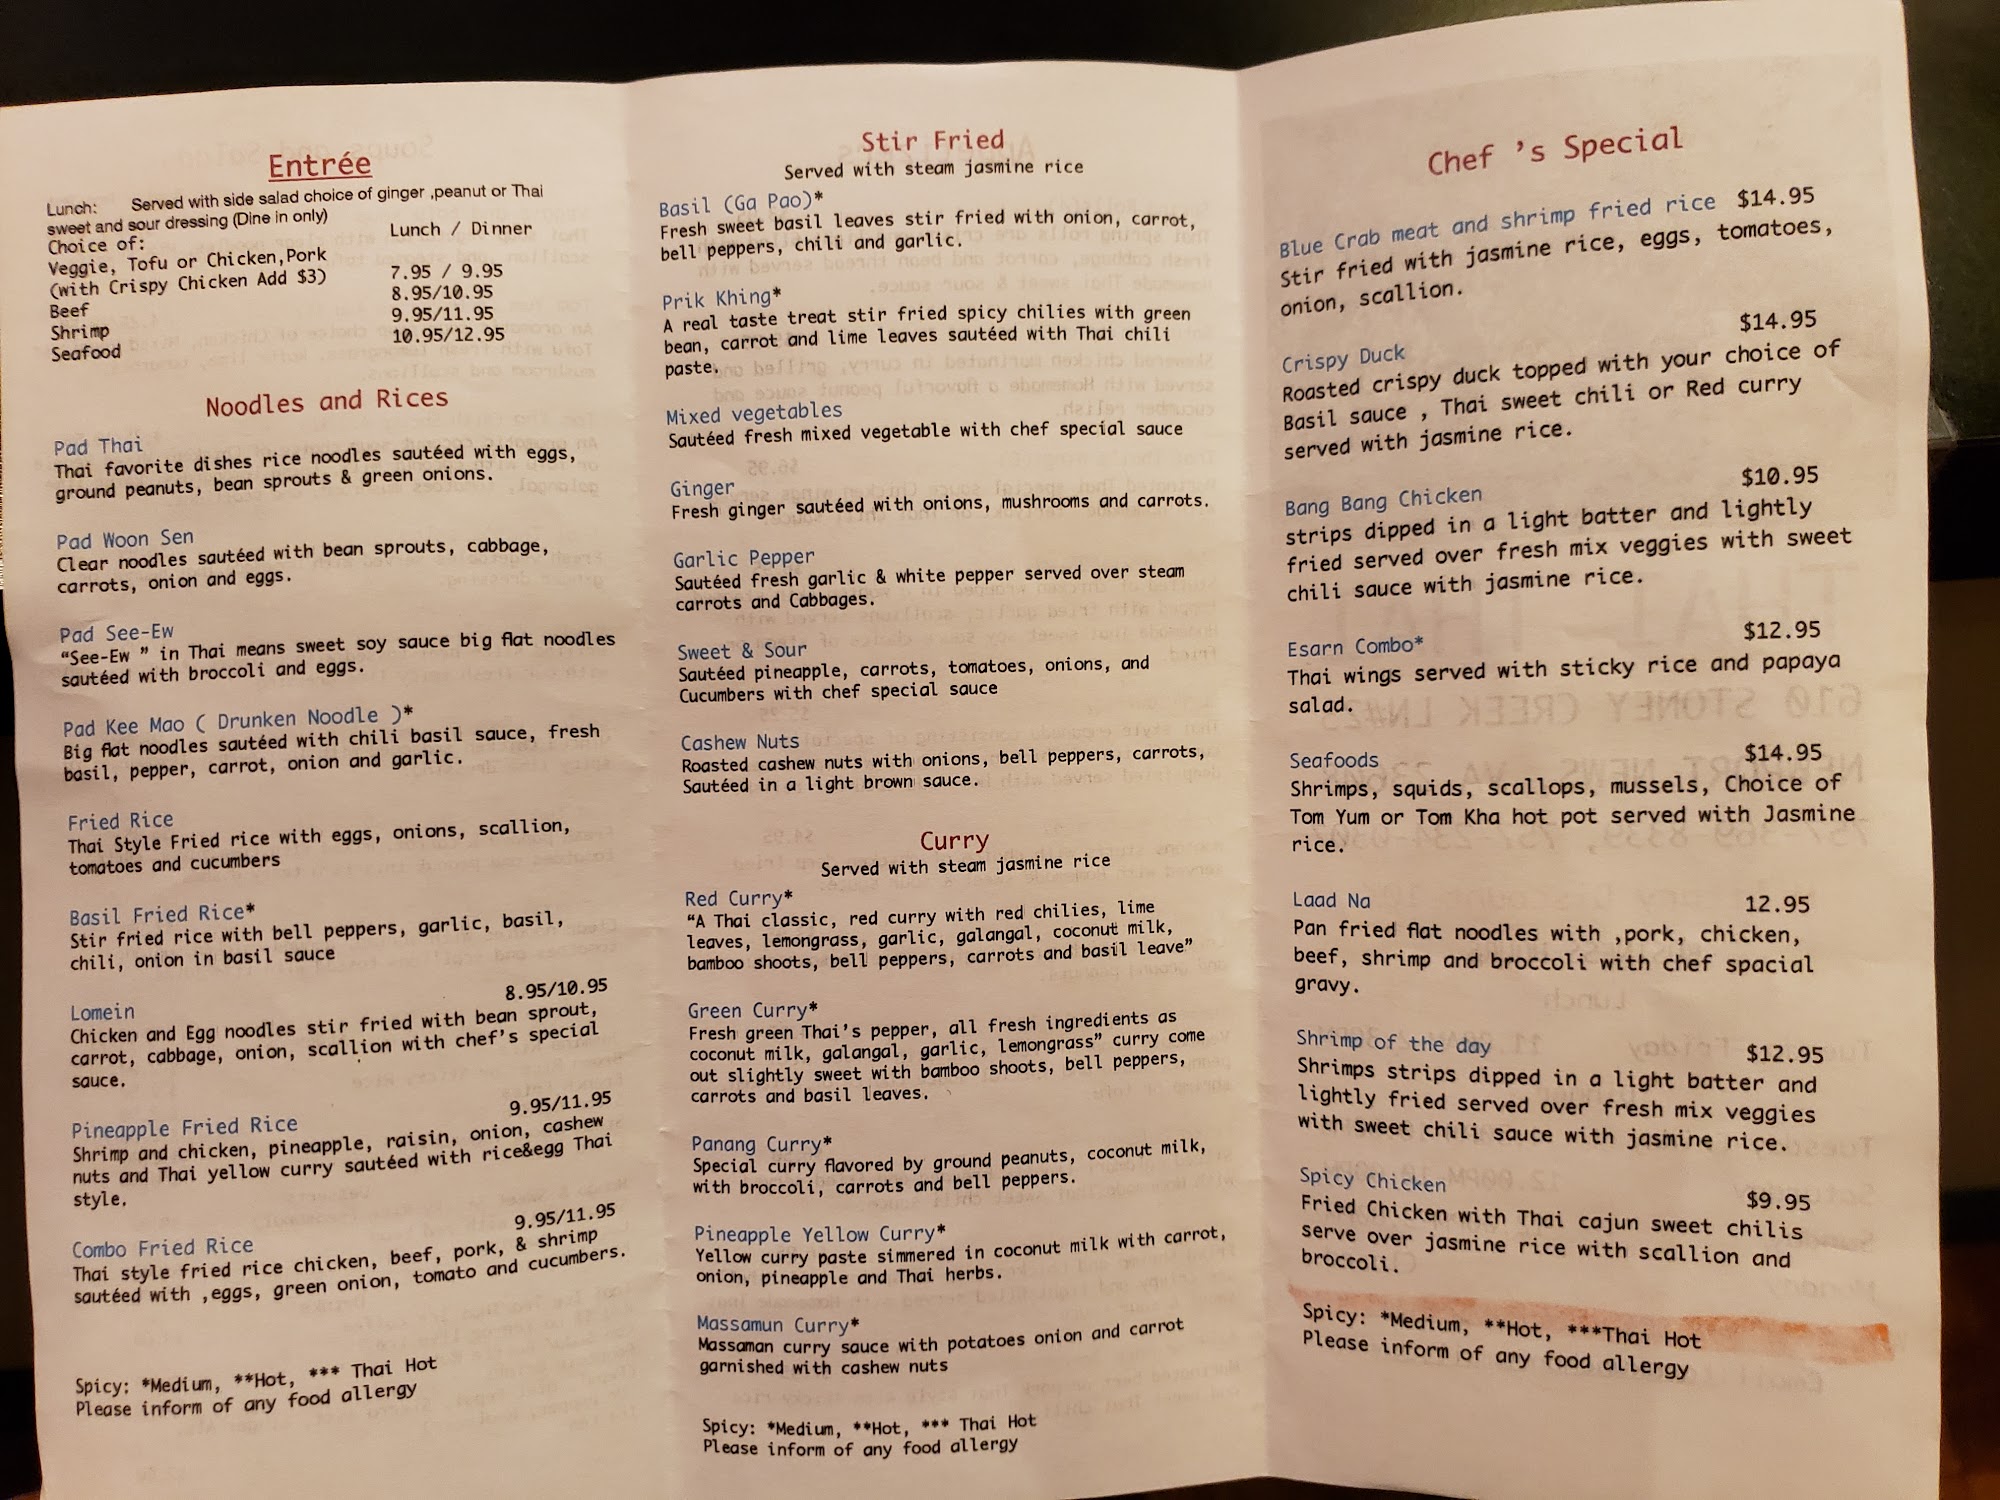 Entrée
Lunch: Served with side salad choice of ginger ,peanut or Thai
sweet and sour dressing (Dine in only)
Choice of: Lunch / Dinner
Veggie, Tofu or Chicken,Pork 7.95 / 9.95
(with Crispy Chicken Add $3)
Beef 8.95/10.95
Shrimp 9.95/11.95
Seafood 10.95/12.95
Noodles and Rices
Pad Thai
Thai favorite dishes rice noodles sautéed with eggs,
ground peanuts, bean sprouts & green onions.
Pad Woon Sen
Clear noodles sautéed with bean sprouts, cabbage,
carrots, onion and eggs.
Pad See-Ew
“See-Ew ” in Thai means sweet soy sauce big flat noodles
sautéed with broccoli and eggs.
Pad Kee Mao ( Drunken Noodle )*
Big flat noodles sautéed with chili basil sauce, fresh
basil, pepper, carrot, onion and garlic.
Fried Rice
Thai Style Fried rice with eggs, onions, scallion,
tomatoes and cucumbers
Basil Fried Rice*
Stir fried rice with bell peppers, garlic, basil,
chili, onion in basil sauce
Lomein 8.95/10.95
Chicken and Egg noodles stir fried with bean sprout,
carrot, cabbage, onion, scallion with chef's special
sauce.
Pineapple Fried Rice 9.95/11.95
Shrimp and chicken, pineapple, raisin, onion, cashew
nuts and Thai yellow curry sautéed with rice&egg Thai
style.
Combo Fried Rice 9.95/11.95
Thai style fried rice chicken, beef, pork, & shrimp
sautéed with ,eggs, green onion, tomato and cucumbers.
Spicy: *Medium, **Hot, *** Thai Hot
Please inform of any food allergy
Stir Fried
Served with steam jasmine rice
Basil (Ga Pao)*
Fresh sweet basil leaves stir fried with onion, carrot,
bell peppers, chili and garlic.
Prik Khing*
A real taste treat stir fried spicy chilies with green
bean, carrot and lime leaves sautéed with Thai chili
paste.
Mixed vegetables
Sautéed fresh mixed vegetable with chef special sauce
Ginger
Fresh ginger sautéed with onions, mushrooms and carrots.
Garlic Pepper
Sautéed fresh garlic & white pepper served over steam
carrots and Cabbages.
Sweet & Sour
Sautéed pineapple, carrots, tomatoes, onions, and
Cucumbers with chef special sauce
Cashew Nuts
Roasted cashew nuts with onions, bell peppers, carrots,
Sautéed in a light brown sauce.
Curry
Served with steam jasmine rice
Red Curry*
“A Thai classic, red curry with red chilies, lime
leaves, lemongrass, garlic, galangal, coconut milk,
bamboo shoots, bell peppers, carrots and basil leave”
Green Curry*
Fresh green Thai's pepper, all fresh ingredients as
coconut milk, galangal, garlic, lemongrass” curry come
out slightly sweet with bamboo shoots, bell peppers,
carrots and basil leaves.
Panang Curry*
Special curry flavored by ground peanuts, coconut milk,
with broccoli, carrots and bell peppers.
Pineapple Yellow Curry*
Yellow curry paste simmered in coconut milk with carrot,
onion, pineapple and Thai herbs.
Massamun Curry*
Massaman curry sauce with potatoes onion and carrot
garnished with cashew nuts
Spicy: *Medium, **Hot, *** Thai Hot
Please inform of any food allergy
Chef 's Special
Blue Crab meat and shrimp fried rice $14.95
Stir fried with jasmine rice, eggs, tomatoes,
onion, scallion.
Crispy Duck $14.95
Roasted crispy duck topped with your choice of
Basil sauce , Thai sweet chili or Red curry
served with jasmine rice.
Bang Bang Chicken $10.95
strips dipped in a light batter and lightly
fried served over fresh mix veggies with sweet
chili sauce with jasmine rice.
Esarn Combo* $12.95
Thai wings served with sticky rice and papaya
salad.
Seafoods $14.95
Shrimps, squids, scallops, mussels, Choice of
Tom Yum or Tom Kha hot pot served with Jasmine
rice.
Laad Na 12.95
Pan fried flat noodles with ,pork, chicken,
beef, shrimp and broccoli with chef spacial
gravy.
Shrimp of the day $12.95
Shrimps strips dipped in a light batter and
lightly fried served over fresh mix veggies
with sweet chili sauce with jasmine rice.
Spicy Chicken $9.95
Fried Chicken with Thai cajun sweet chilis
serve over jasmine rice with scallion and
broccoli.
Spicy: *Medium, **Hot, ***Thai Hot
Please inform of any food allergy